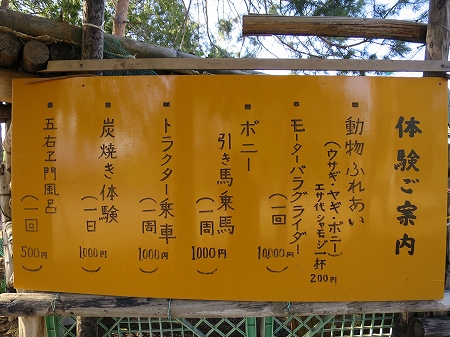 体験ご案内
■ 動物ふれあい
(ウサギ・ヤギ・ポニー)
エサ代シャモジ一杯
200円
■ モーターパラグライダー
(一回)
10,000円
■ ポニー
引き馬乗馬
(一周)
1000円
■ トラクター乗車
(一周)
1000円
■ 炭焼き体験
(一日)
1000円
■ 五右ヱ門風呂
(一回)
500円